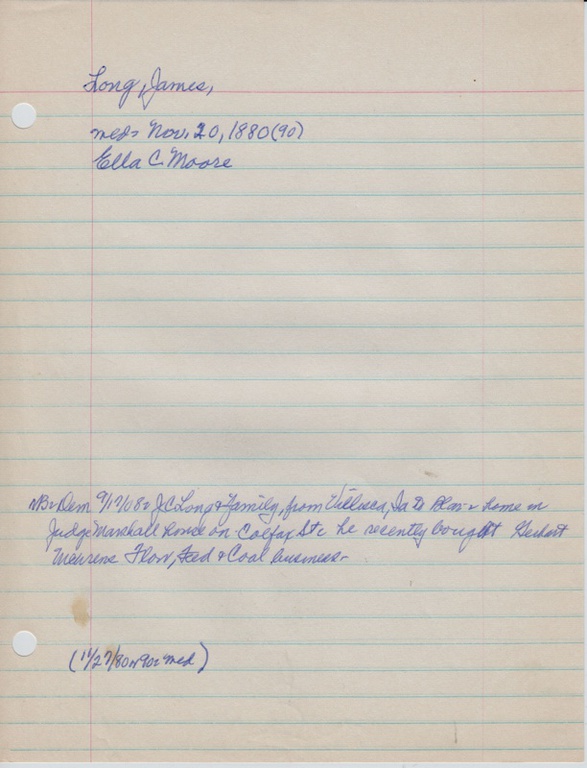 Long, James,
med= Nov. 20, 1880(90)
Ella C. Moore
NB= Dem 9/17/08= J.C. Long & Family, from Villisca, Ia to home in
Judge Marshall house on Colfax St= he recently bought
Flour, Feed & Coal business-
(11/27/80 or 90= med)